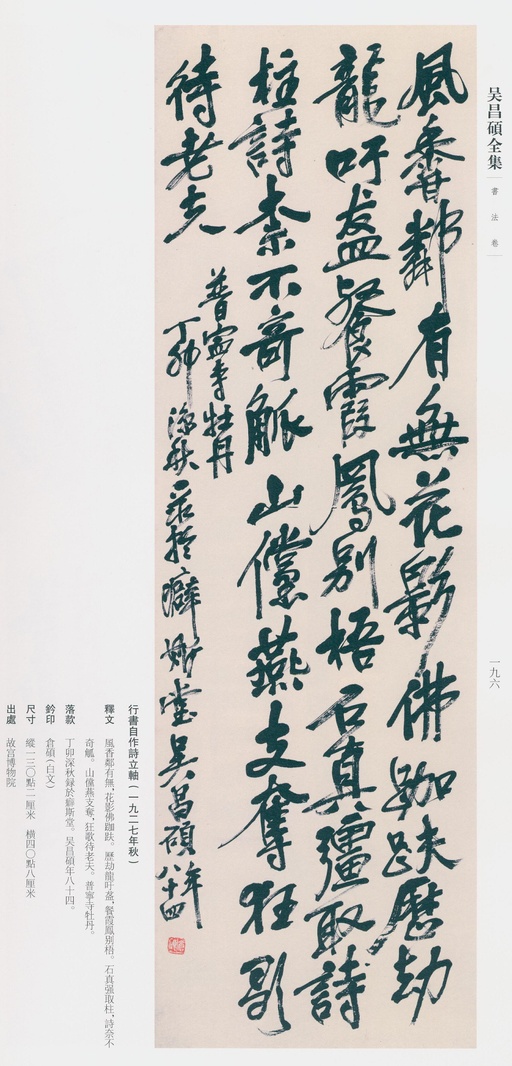 吴昌碩全集 書法卷
一九六
風香鄰有無花影佛跏趺歷劫
龍吁盍餐霞鳳別梧石真彊取詩
柱詩柰不奇觚山儻燕支奪狂歌
待老夫
普寧寺牡丹
丁卯深秋录於癖斯堂吴昌碩年八十四
行書自作詩立軸（一九二七年秋）
釋文 風香鄰有無，花影佛跏趺。歷劫龍吁盍，餐霞鳳别梧。石真强取柱，詩奈不
奇觚。山儻燕支奪，狂歌待老夫。普寧寺牡丹。
落款 丁卯深秋録於癖斯堂。吴昌碩年八十四。
鈐印 倉碩（白文）
尺寸 縱一三〇點二厘米 橫四〇點八厘米
出處 故宫博物院